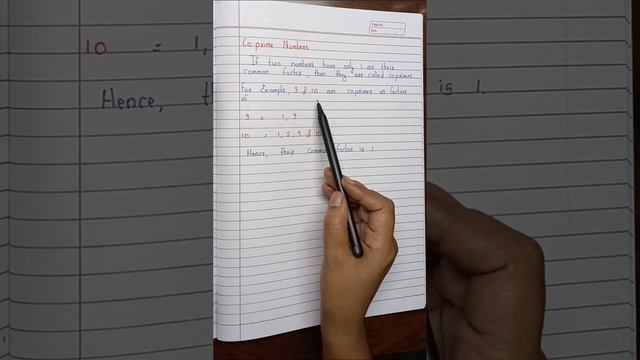 Co prime Numbers
If two numbers have only 1 as their
common factor, then they are called coprimes
For Example, 3 & 10 are coprimes as factors
of
3 = 1, 3
10 = 1, 2, 5 & 10
Hence, their common factor is 1